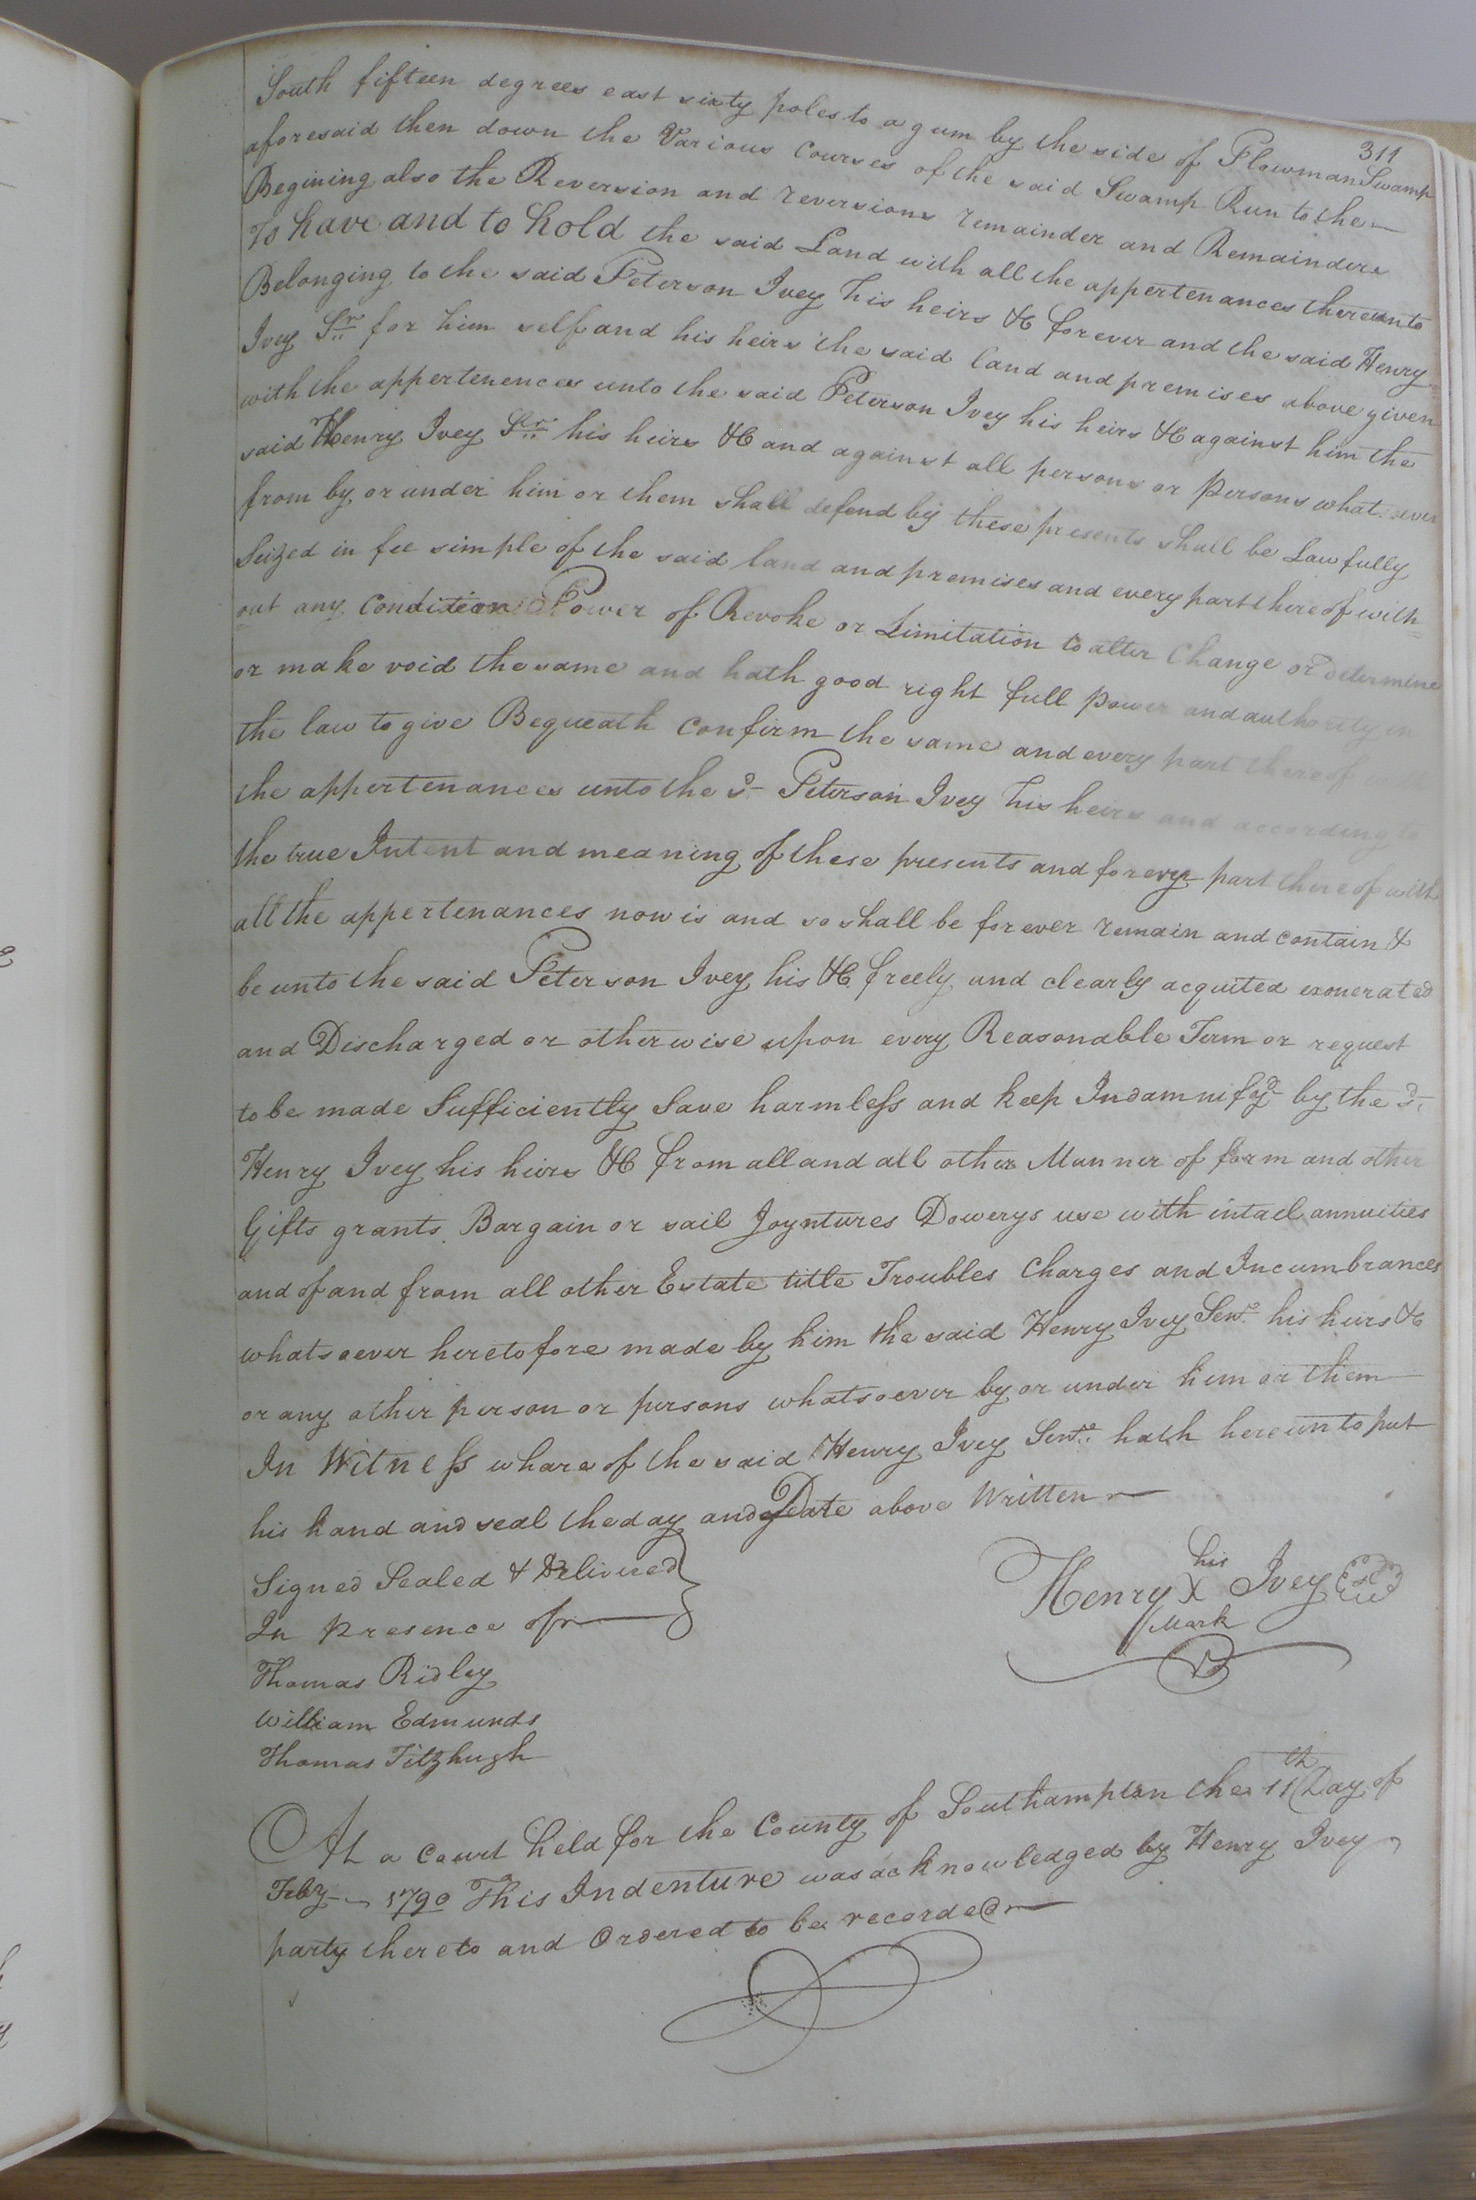 311
South fifteen degrees east sixty poles to a gum by the side of Plowman Swamp
aforesaid then down the Various Courses of the said Swamp Run to the
Begining also the Reversion and reversions remainder and Remainders
To have and to hold the said Land with all the appertenances thereunto
Belonging to the said Peterson Ivey his heirs &c forever and the said Henry
Ivey Sr for him self and his heirs the said land and premises above given
with the appertenences unto the said Peterson Ivey his heirs &c against him the
said Henry Ivey Sr his heirs &c and against all persons or Persons what ever
from by or under him or them shall defend by these presents shall be Lawfully
Seized in fee simple of the said land and premises and every part thereof with
out any Condition Power of Revoke or Limitation to alter Change or determine
or make void the same and hath good right full Power and authority in
the law to give Bequeath Confirm the same and every part thereof
the appertenances unto the sd Peterson Ivey his heirs and according to
the true Intent and meaning of these presents and forevry part thereof with
all the appertenances now is and so shall be for ever remain and contain &
be unto the said Peterson Ivey his &c freely and clearly acquited exonerated
and Discharged or otherwise upon every Reasonable Term or request
to be made Sufficiently Save harmless and keep Indamnifyd by the sd
Henry Ivey his heirs &c from all and all other Manner of form and other
Gifts grants Bargain or sail Joyntures Dowerys use with intail annuities
and of and from all other Estate title Troubles Charges and Incumbrances
whatsoever heretofore made by him the said Henry Ivey Senr his heirs &c
or any other person or persons whatsoever by or under him or them
In Witness whare of the said Henry Ivey Senr hath hereunto put
his hand and seal the day and Date above Written
Signed Sealed & Delivered
In Presence of
his
Henry X Ivey
Mark
Thomas Ridley
William Edmunds
Thomas Fitzhugh
At a Court held for the County of Southampton the 11th Day of
Feby 1790 This Indenture was acknowledged by Henry Ivey
party thereto and Ordered to be recorded